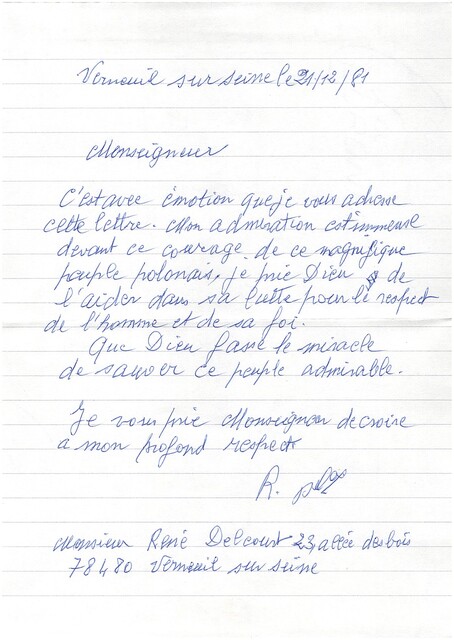 Verneuil sur seine le 21/12/81
Monseigneur
C'est avec émotion que je vous adresse
cette lettre. Mon admiration est immense
devant ce courage de ce magnifique
peuple polonais, je prie Dieu de
l'aider dans sa lutte pour le respect
de l'homme et de sa foi.
Que Dieu fasse le miracle
de sauver ce peuple admirable.
Je vous prie Monseigneur de croire
a mon profond respect
R.
Monsieur René Delcourt 23, allée des bois
78480 Verneuil sur seine